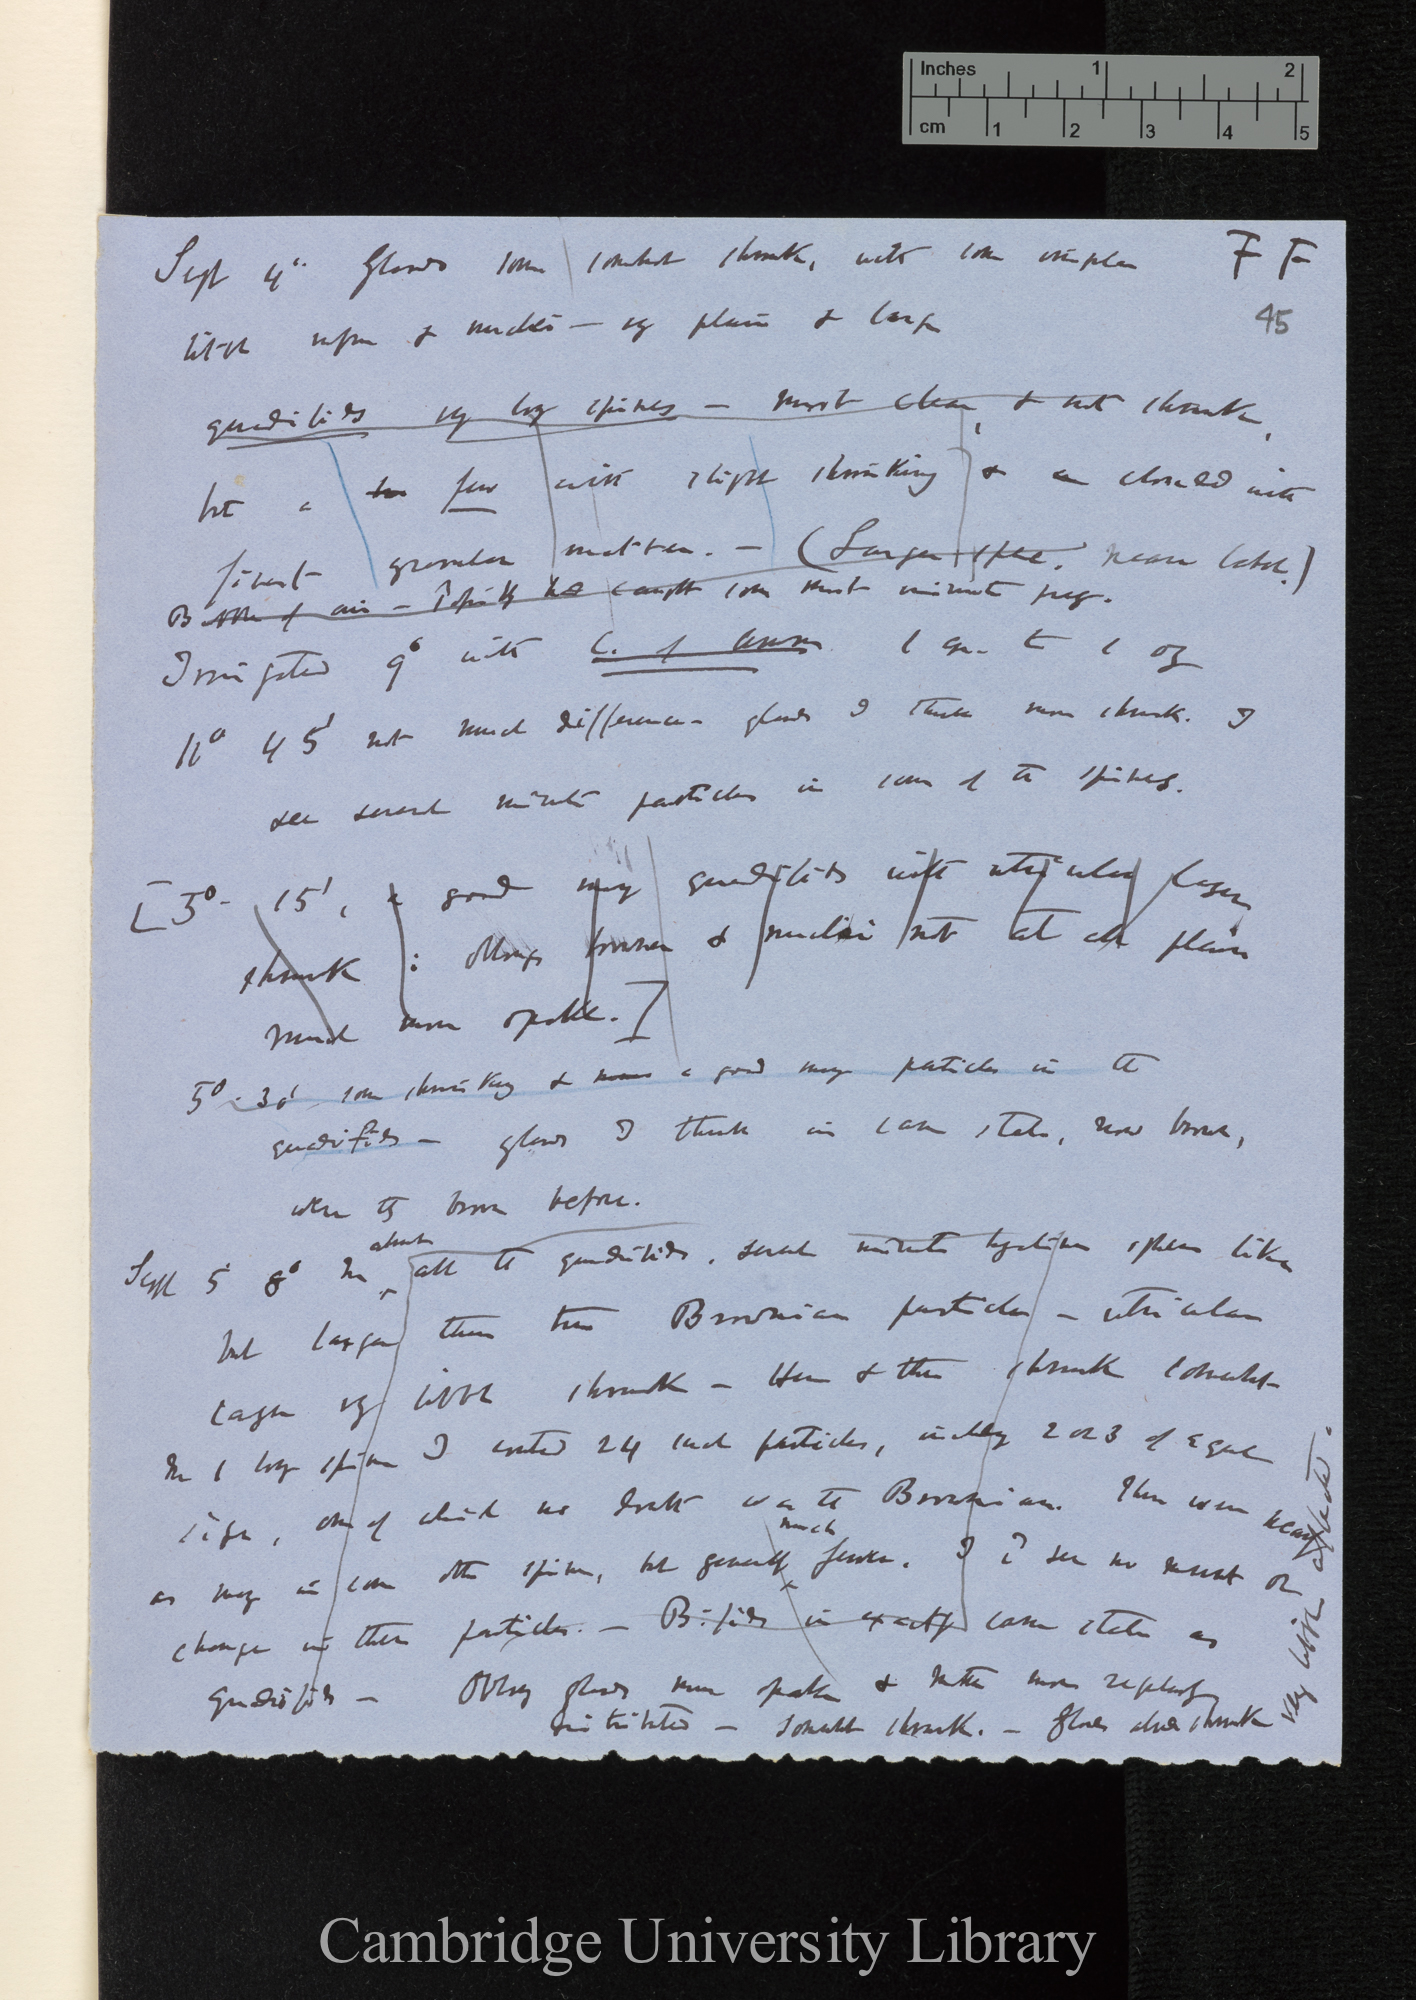 Inches 1 2
cm 1 2 3 4 5
Sept 4th Glands some somewhat shrunk, with some
F F
45
little & nuclei — vy plain & large
quadrifids vy long spines — most clear, & not shrunk,
but a few with slight shrinking & clouded with
finest granular matter. — (Larger spec. near latch.)
B of air — caught some most minute
Irrigated 9° with C. of Ammon 1 gr. to 1 oz
11° 45' not much difference — glands I think more shrunk. I
see several minute particles in some of the spines.
[3° 15', a good many quadrifids with utricular layer
shrunk : oblongs browner & nuclei not at all plain
much more opake.]
5° 30' some shrinking & a good many particles in the
quadrifids — glands I think in same state, now brown,
were they brown before.
Sept 5 8° In
almost
all the quadrifids, several minute hyaline spheres like
but larger than true Brownian particles — utricular
layer vy little shrunk — Here & there shrunk somewhat
In 1 long spine I counted 24 such particles, including 2 or 3 of equal
size, one of which no doubt was the Brownian. There were nearly
as many in some other spines, but generally
much
fewer. I see no movt or
change in these particles. — Bifids in exactly same state as
quadrifids — Oblong glands more opake & matter more
distributed — somewhat shrunk. — Glands also shrunk
very little affected.
Cambridge University Library